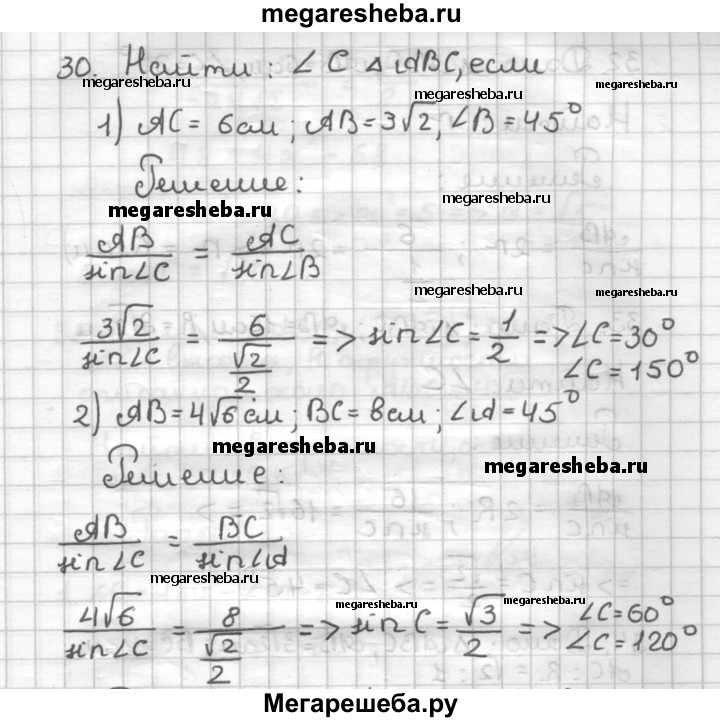 megaresheba.ru
30. Найти: ∠C △ABC, если
megaresheba.ru megaresheba.ru
1) AC = 6см; AB = 3√2, ∠B = 45°
Решение:
megaresheba.ru megaresheba.ru
AB/sin∠C = AC/sin∠B
megaresheba.ru megaresheba.ru
3√2/sin∠C = 6/(√2/2) => sin∠C = 1/2 => ∠C = 30°
∠C = 150°
2) AB = 4√6 см; BC = 8см; ∠A = 45°
megaresheba.ru
Решение:
megaresheba.ru
AB/sin∠C = BC/sin∠A
megaresheba.ru
megaresheba.ru megaresheba.ru
4√6/sin∠C = 8/(√2/2) => sin C = √3/2 => ∠C = 60°
∠C = 120°
Мегарешеба.ру